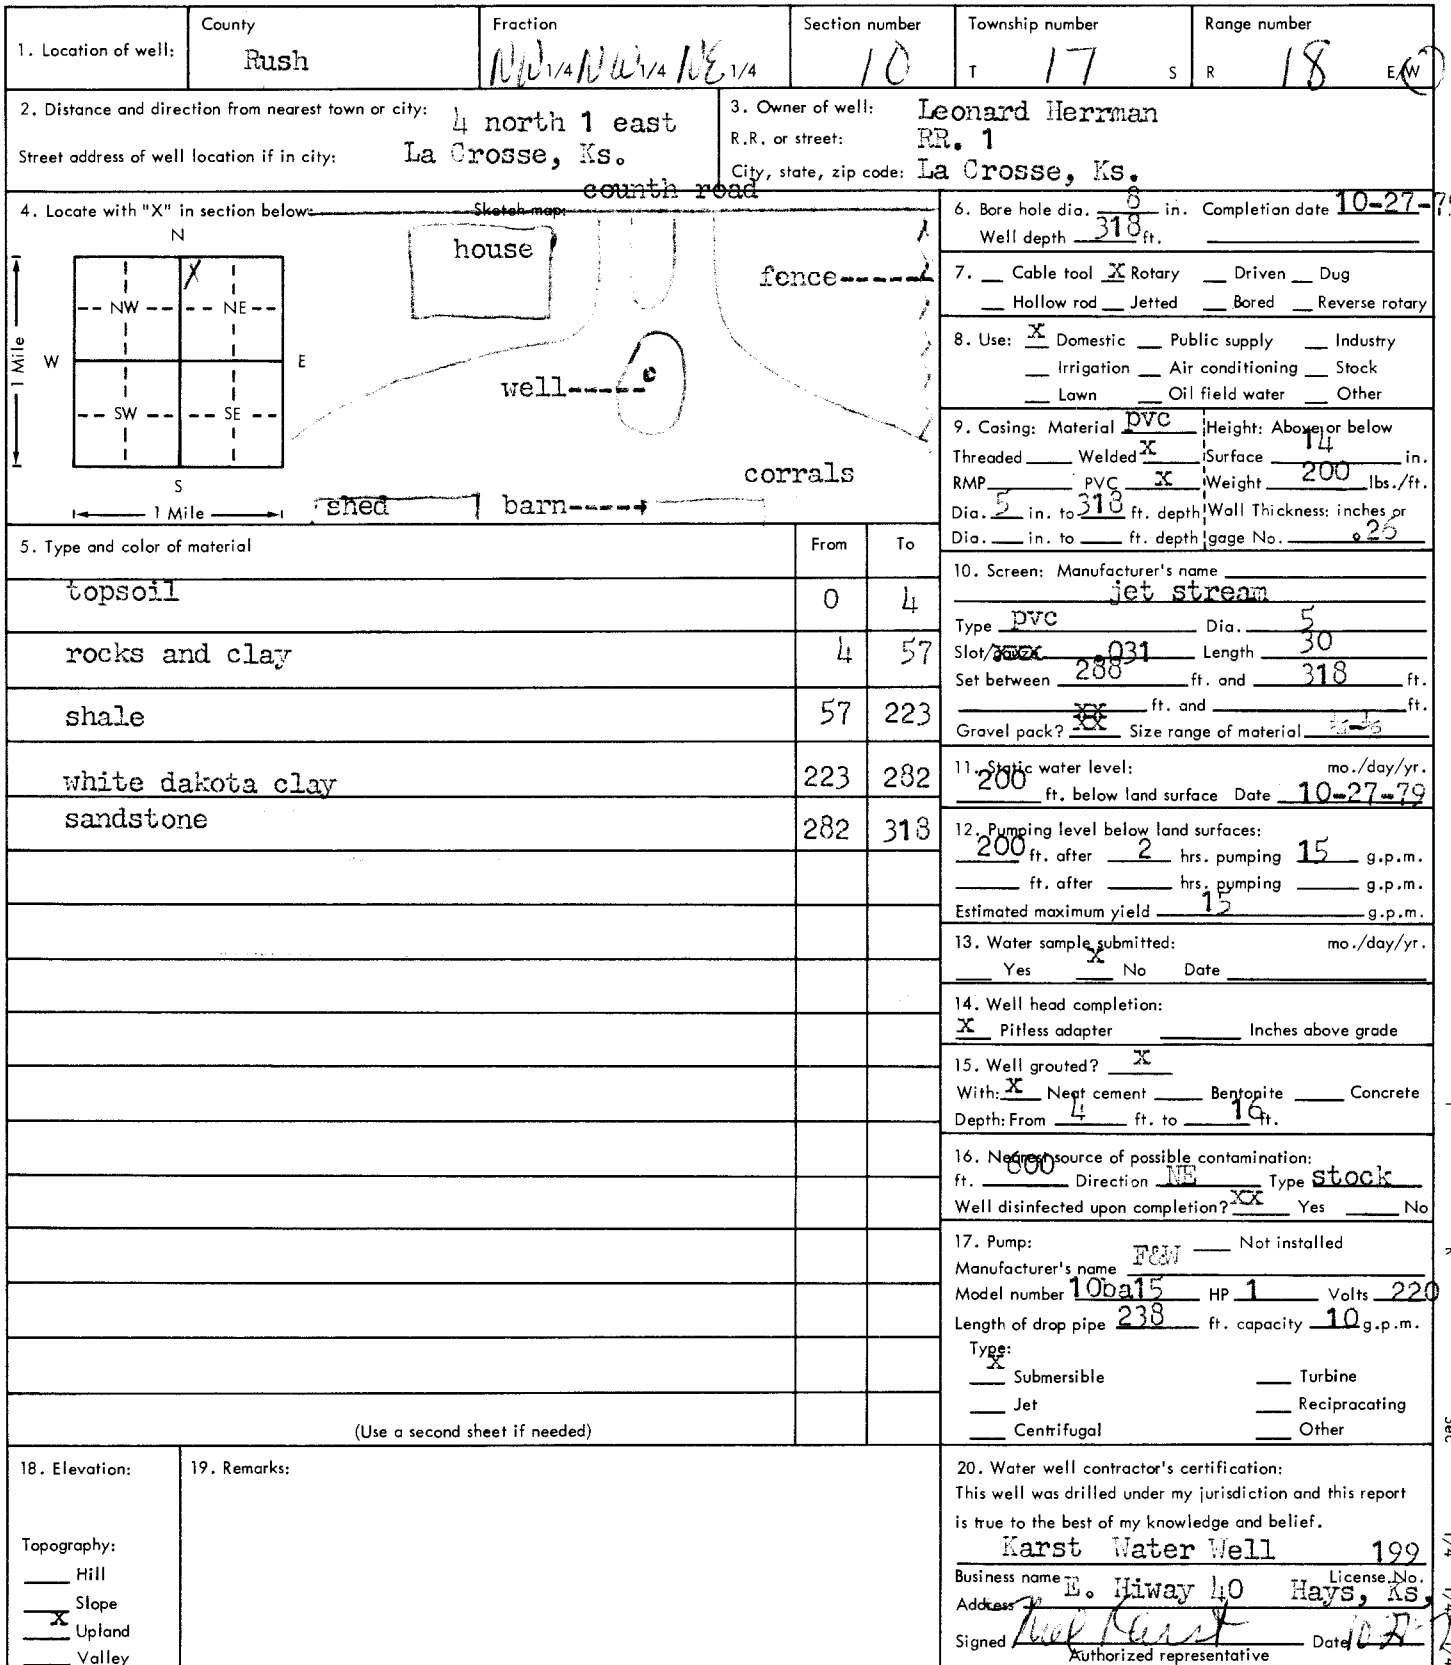 1. Location of well: County Rush Fraction NW 1/4 NW 1/4 NE 1/4 Section number 10 Township number T 17 S Range number R 18 E/W
2. Distance and direction from nearest town or city: 4 north 1 east
Street address of well location if in city: La Crosse, Ks.
3. Owner of well: Leonard Herrman
R.R. or street: RR. 1
City, state, zip code: La Crosse, Ks.
4. Locate with "X" in section below: Sketch map:
counth road
N
house
fence
X
NW NE
W E
1 Mile
well
SW SE
corrals
S
1 Mile
shed barn
5. Type and color of material From To
topsoil 0 4
rocks and clay 4 57
shale 57 223
white dakota clay 223 282
sandstone 282 318
(Use a second sheet if needed)
6. Bore hole dia. 8 in. Completian date 10-27-7
Well depth 318 ft.
7. __ Cable tool X Rotary __ Driven __ Dug
__ Hollow rod __ Jetted __ Bored __ Reverse rotary
8. Use: X Domestic __ Public supply __ Industry
__ Irrigation __ Air conditioning __ Stock
__ Lawn __ Oil field water __ Other
9. Casing: Material pvc Height: Above or below
Threaded __ Welded X Surface 14 in.
RMP __ PVC X Weight 200 lbs./ft.
Dia. 5 in. to 318 ft. depth Wall Thickness: inches or
Dia. __ in. to __ ft. depth gage No. .25
10. Screen: Manufacturer's name
jet stream
Type pvc Dia. 5
Slot/ .031 Length 30
Set between 288 ft. and 318 ft.
__ ft. and __ ft.
Gravel pack? XX Size range of material
11. Static water level: mo./day/yr.
200 ft. below land surface Date 10-27-79
12. Pumping level below land surfaces:
200 ft. after 2 hrs. pumping 15 g.p.m.
__ ft. after __ hrs. pumping __ g.p.m.
Estimated maximum yield 15 g.p.m.
13. Water sample submitted: mo./day/yr.
__ Yes X No Date __
14. Well head completion:
X Pitless adapter __ Inches above grade
15. Well grouted? X
With: X Neat cement __ Bentonite __ Concrete
Depth: From 4 ft. to 16 ft.
16. Nearest source of possible contamination:
ft. 600 Direction NE Type stock
Well disinfected upon completion? XX Yes __ No
17. Pump: __ Not installed
Manufacturer's name F&W
Model number 10ba15 HP 1 Volts 220
Length of drop pipe 238 ft. capacity 10 g.p.m.
Type:
X Submersible __ Turbine
__ Jet __ Reciprocating
__ Centrifugal __ Other
18. Elevation:
Topography:
__ Hill
__ Slope
X Upland
__ Valley
19. Remarks:
20. Water well contractor's certification:
This well was drilled under my jurisdiction and this report
is true to the best of my knowledge and belief.
Karst Water Well 199
Business name License No.
Address E. Hiway 40 Hays, Ks.
Signed Karst Date
Authorized representative